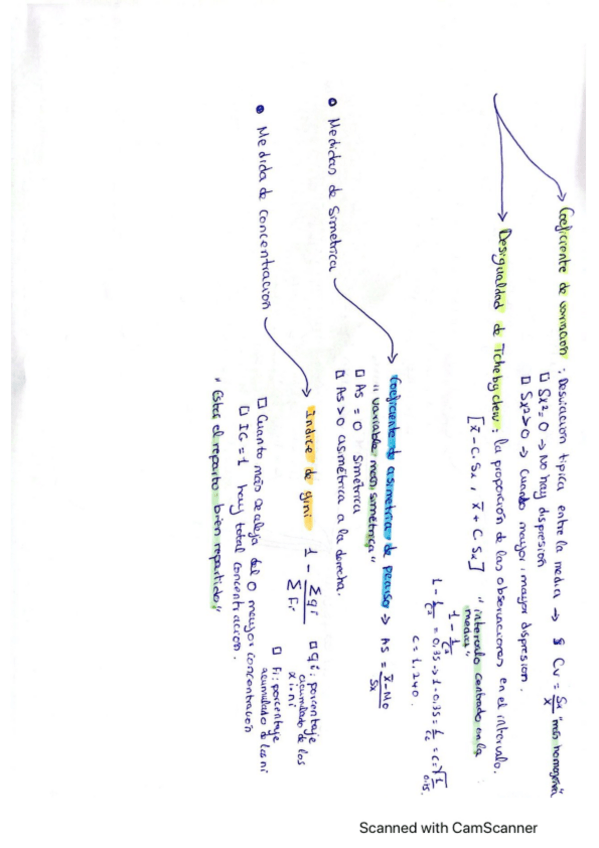 Coeficiente de variación : Desviación típica entre la media → Cv = Sx/x̄ "más homogénea"
□ Sx²=0 → No hay dispresión
□ Sx²>0 → Cuando mayor, mayor dispresion.
Desigualdad de Tchebychev : la proporción de las observaciones en el intervalo.
[x̄ - C·Sx , x̄ + C·Sx] "intervalo centrado en la media"
1 - 1/c²
1 - 1/c² = 0.35 → 1 - 0.35 = 1/c² = c = √1/0.65
c = 1.240.
• Medidas de Simetrica
Coeficiente de asimetria de pearson → As = x̄-Mo/Sx
"variable más simétrica"
□ As = 0 simétrica
□ As > 0 asimétrica a la derecha.
• Medida de concentracion
Indice de gini 1 - Σqi/ΣFi
□ qi: porcentaje acumulado de los xi·ni
□ Fi: porcentaje acumulado de los ni
□ Cuanto más se aleja del 0 mayor concentración
□ IG=1 hay total concentracion.
el reparto bien repartido"
Scanned with CamScanner